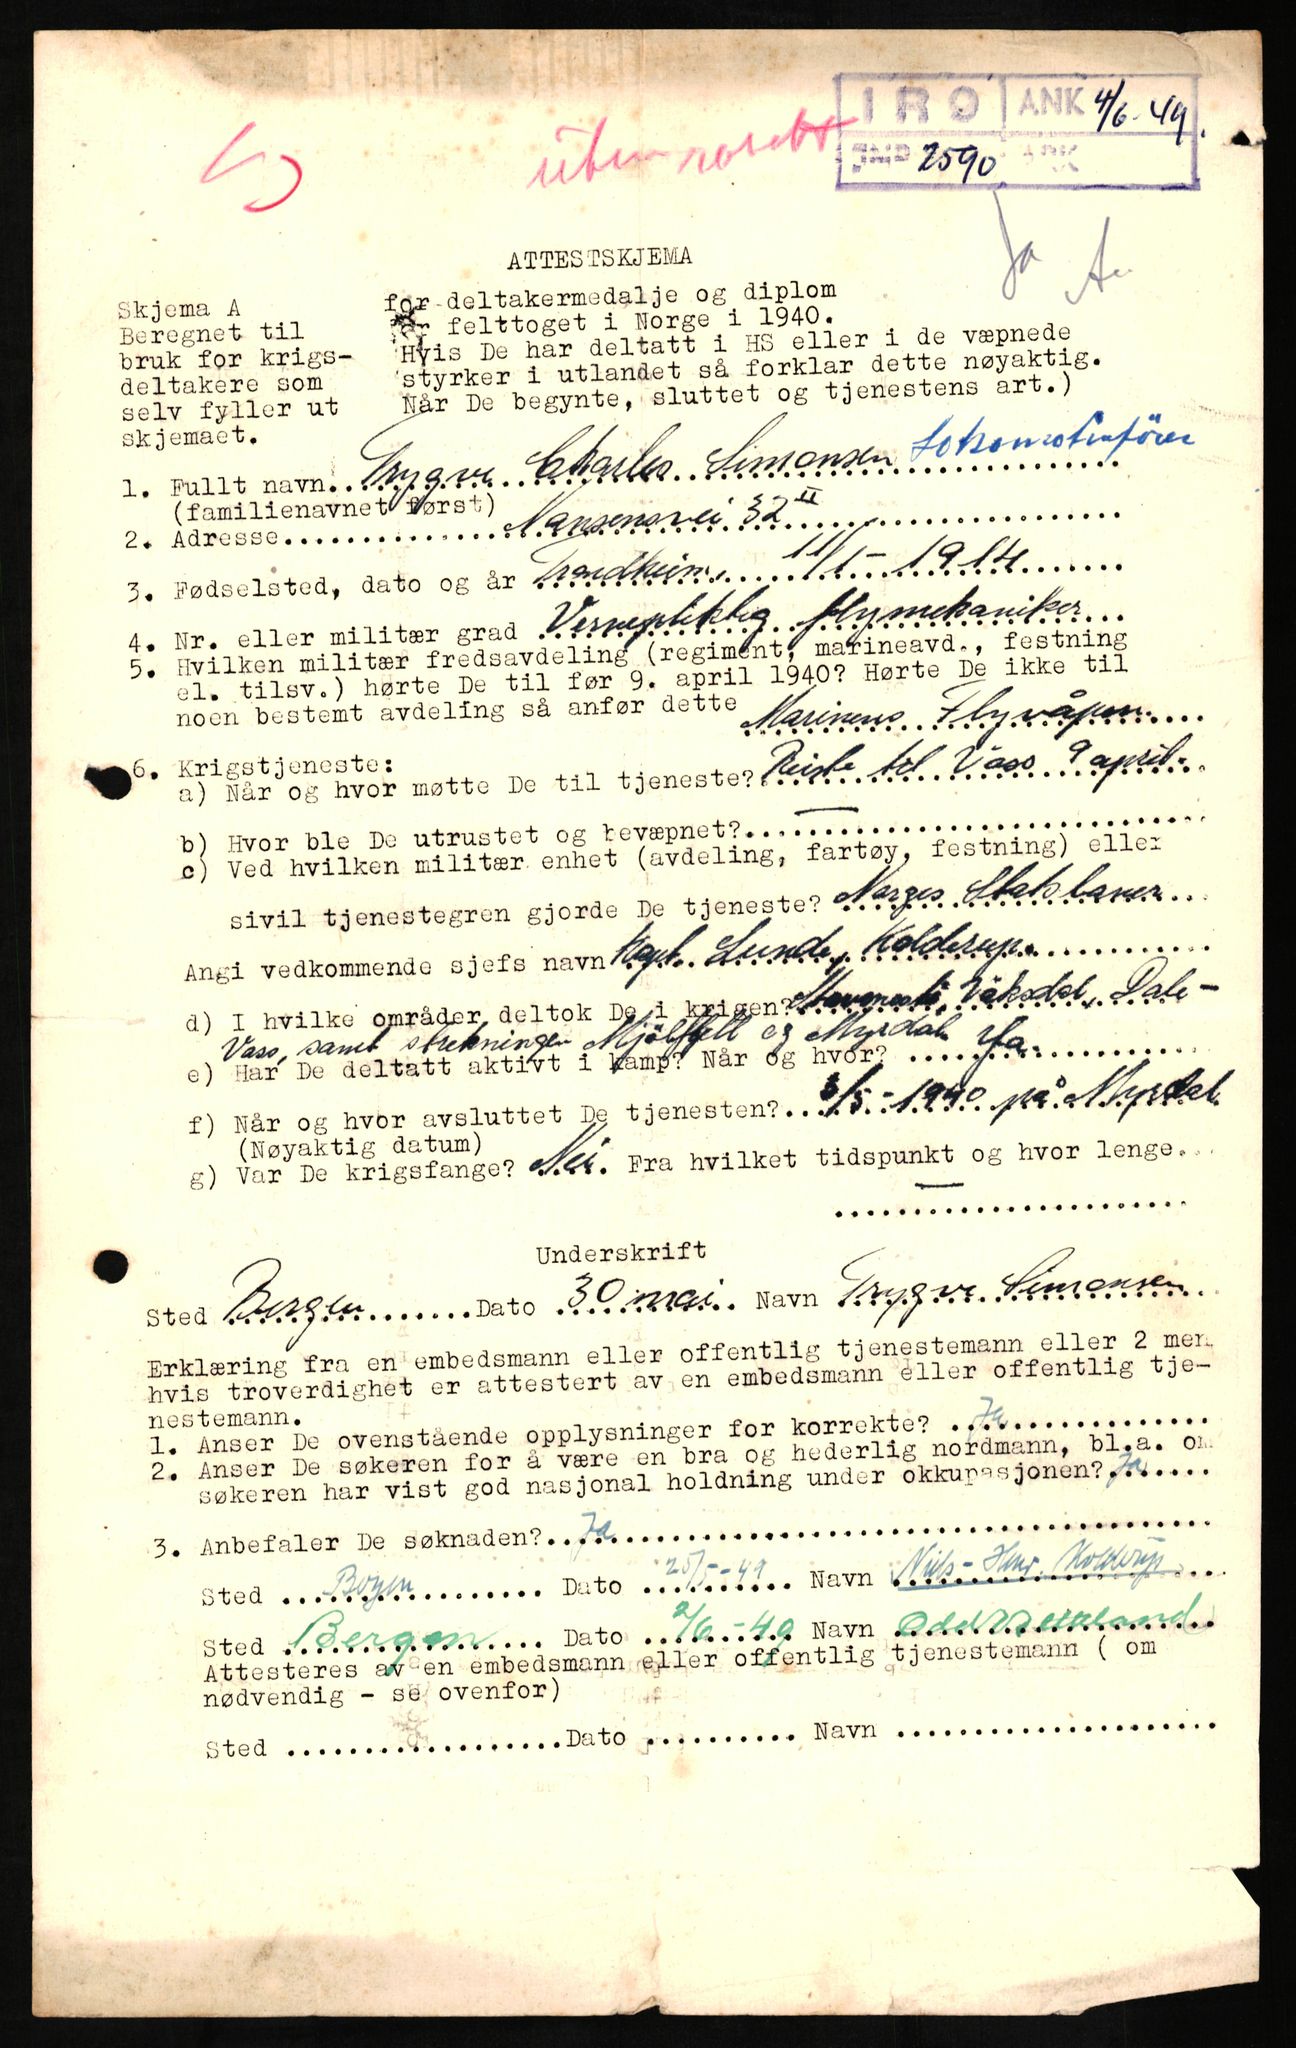 IRO ANK 4/6-49.
JNR 2590 ARK
uten rosett
Ja
ATTESTSKJEMA
Skjema A
Beregnet til
bruk for krigs-
deltakere som
selv fyller ut
skjemaet.
for deltakermedalje og diplom
for felttoget i Norge i 1940.
Hvis De har deltatt i HS eller i de væpnede
styrker i utlandet så forklar dette nøyaktig.
Når De begynte, sluttet og tjenestens art.)
1. Fullt navn Trygve Charles Simonsen Lokomotivfører
(familienavnet først)
2. Adresse Nansensvei 32 II
3. Fødselsted, dato og år Trondheim, 11/1-1914
4. Nr. eller militær grad Vernepliktig flymekaniker
5. Hvilken militær fredsavdeling (regiment, marineavd., festning
el. tilsv.) hørte De til før 9. april 1940? Hørte De ikke til
noen bestemt avdeling så anfør dette Marinens Flyvåpen
6. Krigstjeneste:
a) Når og hvor møtte De til tjeneste? Reiste til Voss 9 april.
b) Hvor ble De utrustet og bevæpnet? —
c) Ved hvilken militær enhet (avdeling, fartøy, festning) eller
sivil tjenestegren gjorde De tjeneste? Norges Statsbaner
Angi vedkommende sjefs navn Kapt. Lunde, Kolderup.
d) I hvilke områder deltok De i krigen? Vaksdal, Dale-
Voss, samt strekningen Mjölfjell og Myrdal
e) Har De deltatt aktivt i kamp? Når og hvor? Ja.
f) Når og hvor avsluttet De tjenesten? /5-1940 på Myrdal
(Nøyaktig datum)
g) Var De krigsfange? Nei. Fra hvilket tidspunkt og hvor lenge
—
Underskrift
Sted Bergen Dato 30 mai Navn Trygve Simonsen
Erklæring fra en embedsmann eller offentlig tjenestemann eller 2 men
hvis troverdighet er attestert av en embedsmann eller offentlig tje-
nestemann.
1. Anser De ovenstående opplysninger for korrekte? Ja
2. Anser De søkeren for å være en bra og hederlig nordmann, bl.a. om
søkeren har vist god nasjonal holdning under okkupasjonen? Ja
3. Anbefaler De søknaden? Ja
Sted Bergen Dato 25/5-49 Navn Niels-Henr. Kolderup
Sted Bergen Dato 2/6-49 Navn Odd
Attesteres av en embedsmann eller offentlig tjenestemann ( om
nødvendig - se ovenfor)
Sted Dato Navn